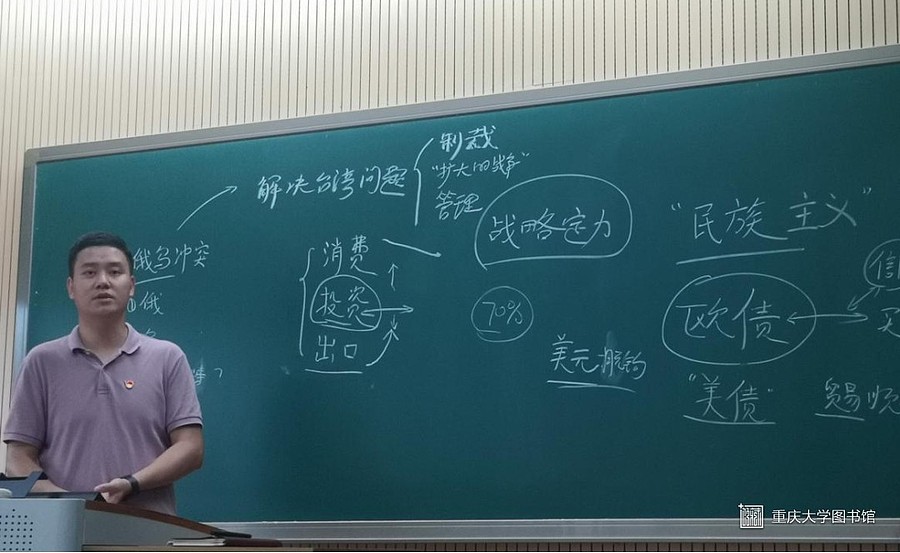 制裁
解决台湾问题
"扩大的战争"
管理
俄乌冲突
消费
战略定力
"民族主义"
①俄
投资
70%
欧债
出口
美元脱钩
"美债"
贸易顺
重庆大学图书馆